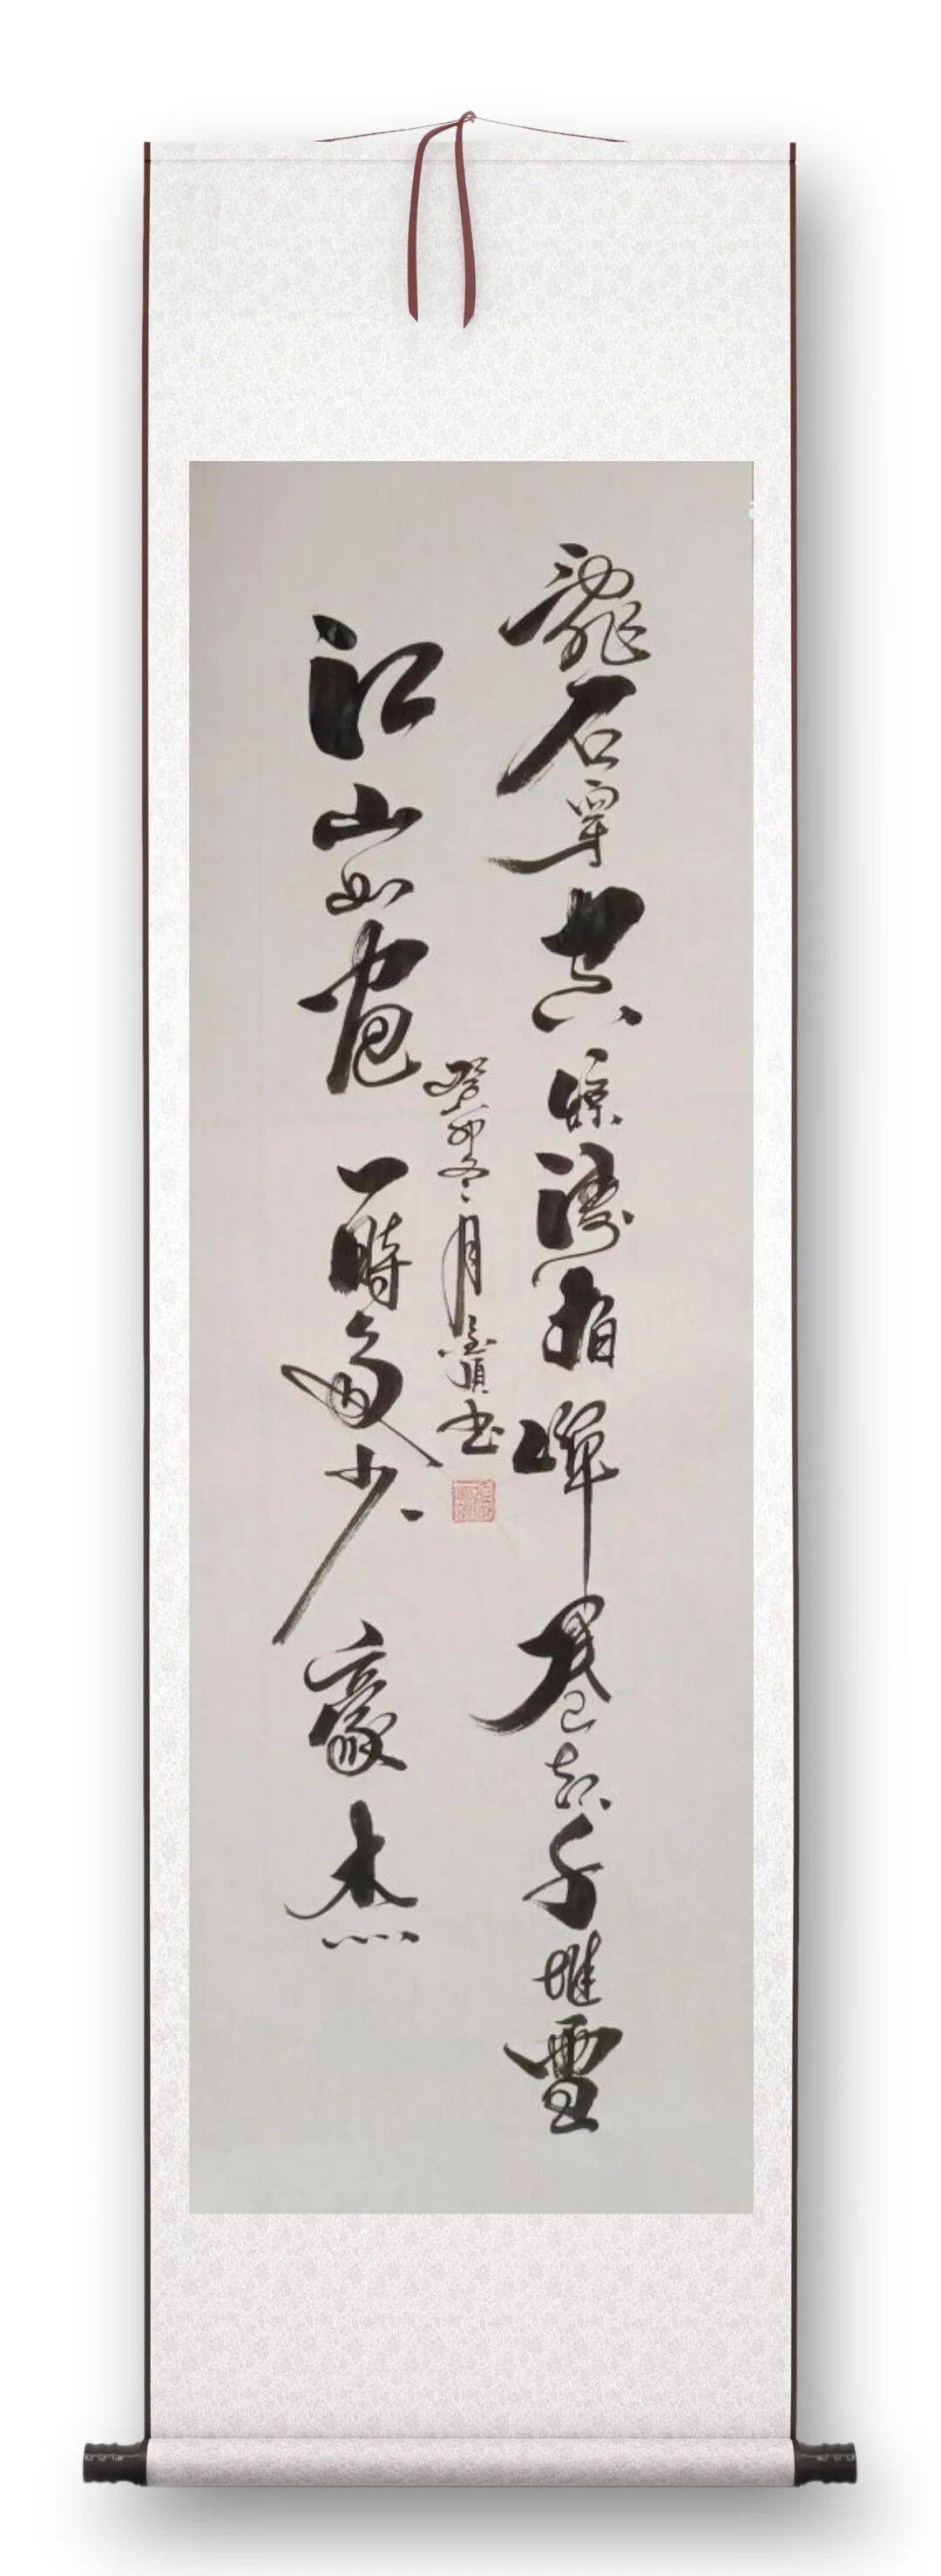 亂石穿空惊濤拍岸卷起千堆雪
江山如畫一時多少豪杰
癸卯冬月書